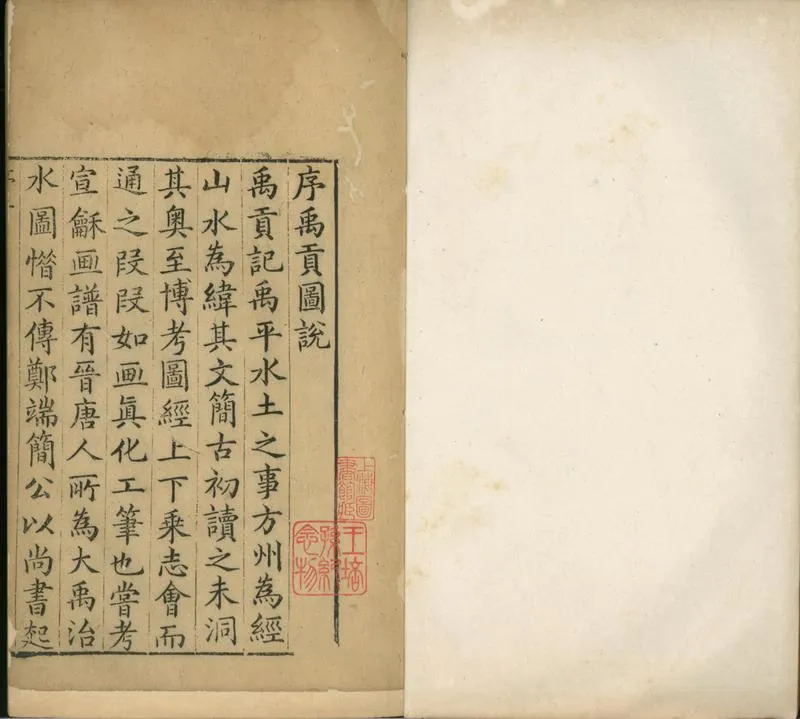 序禹貢圖說
禹貢記禹平水土之事方州為經
山水為緯其文簡古初讀之未洞
其奧至博考圖經上下乘志會而
通之段段如画真化工筆也嘗考
宣龢画譜有晉唐人所為大禹治
水圖惜不傳鄭端簡公以尚書起
上海圖
書館藏
王培
孫紀
念物